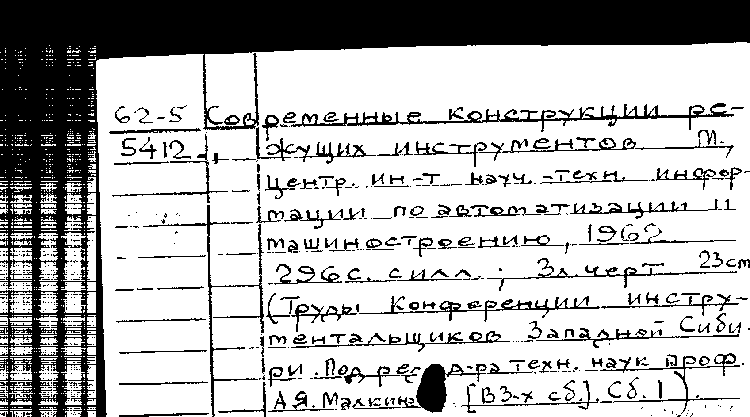 62-5 Современные конструкции ре-
5412 жущих инструментов М.,
центр. ин-т науч.-техн. инфор-
мации по автоматизации и
машиностроению, 1962
296с. с илл.; 3л. черт 23см
(Труды Конференции инстру-
ментальщиков Западной Сиби-
ри. Под ред д-ра техн. наук проф.
А.Я. Малкина. [В 3-х сб.]. Сб. 1)